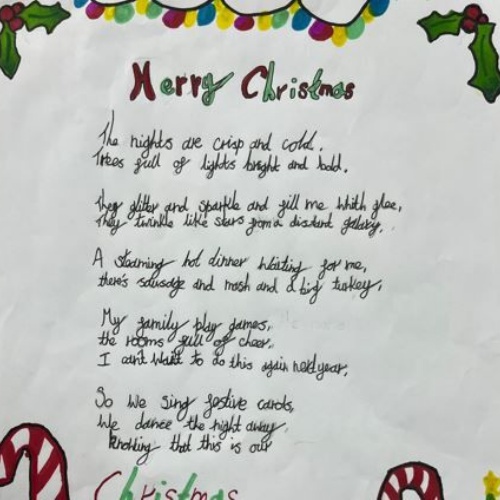 Merry Christmas
The nights are crisp and cold.
Trees full of lights bright and bold.
They glitter and sparkle and fill me whith glee,
They twinkle like stars from a distant galaxy,
A steaming hot dinner waiting for me,
there's sausage and mash and a big turkey,
My family play games,
the rooms full of cheer,
I can't wait to do this again next year,
So we sing festive carols,
We dance the night away,
knowing that this is our
Christmas